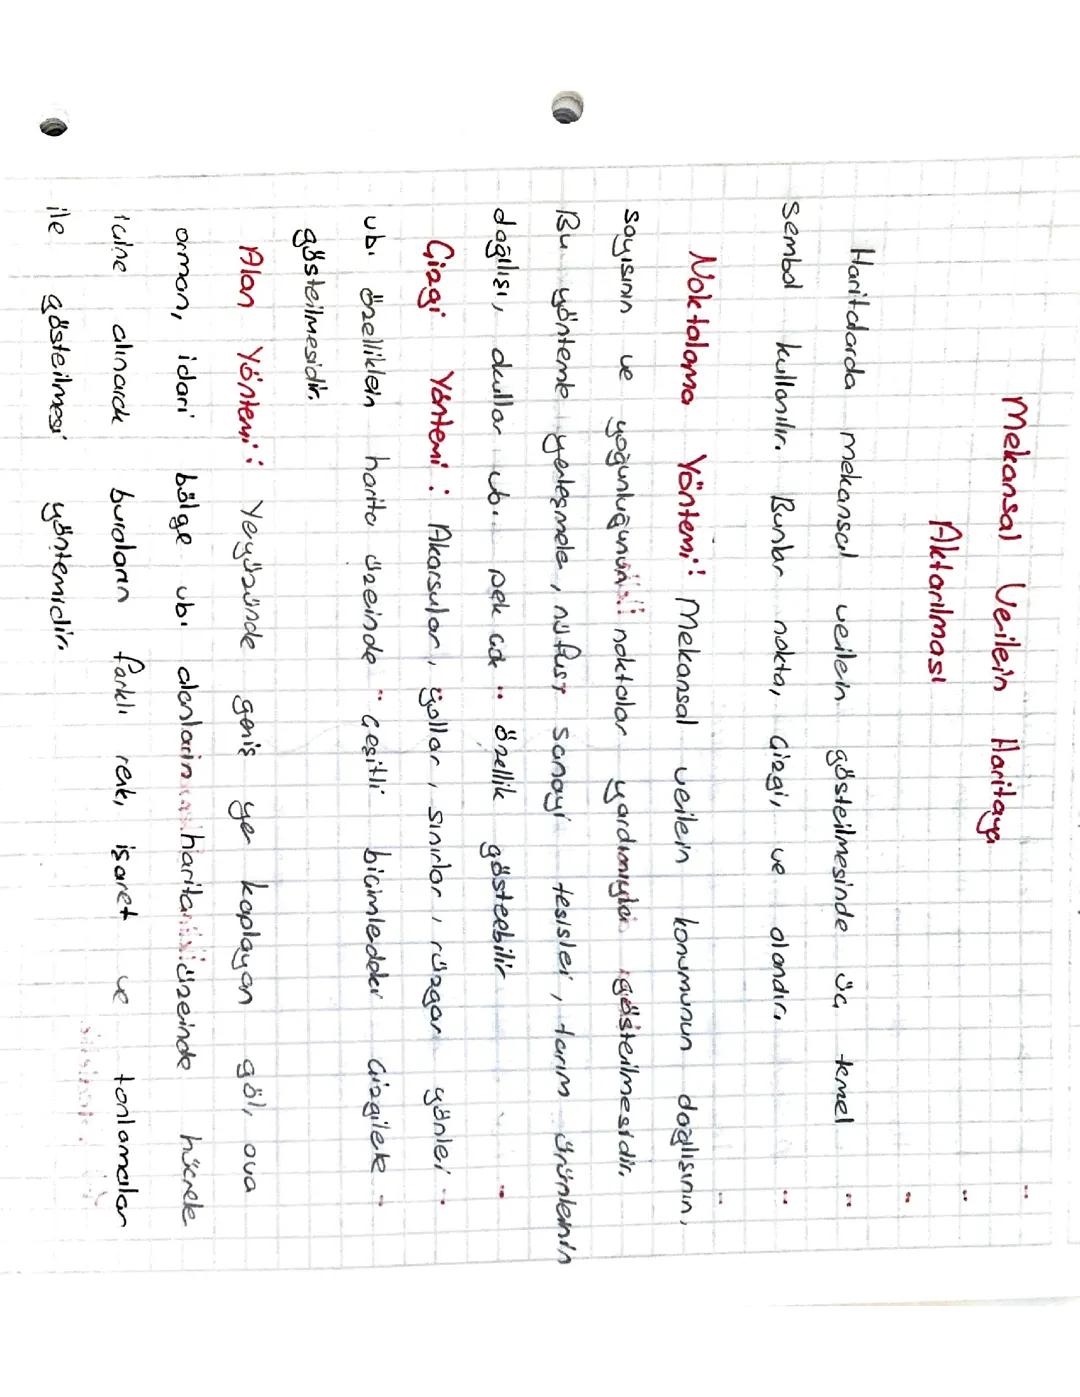 Mekansal Verilerin Haritaya
Aktarılması
Haritalarda mekansal verilerin gösterilmesinde üç temel
sembol kullanılır. Bunlar nokta, çizgi, ve alandır.
Noktalama Yöntemi: Mekansal verilerin konumunun dağılışının,
sayısının ve yoğunluğunun noktalar yardımıyla gösterilmesidir.
Bu yöntemle yerleşmeler, nüfus, sanayi tesisleri, tarım ürünlerinin
dağılışı, okullar vb. pek çok özellik gösterebilir
Çizgi Yöntemi: Akarsular, yollar, sınırlar, rüzgar yönleri
vb. özelliklerin harita üzerinde çeşitli biçimlerdeki çizgilerle
gösterilmesidir.
Alan Yöntemi: Yeryüzünde geniş yer kaplayan göl, ova
orman, idari bölge vb. alanların harita üzerinde hücrelere
alınarak buraların farklı renk, işaret ve tonlamalar
ile gösterilmesi yöntemidir.